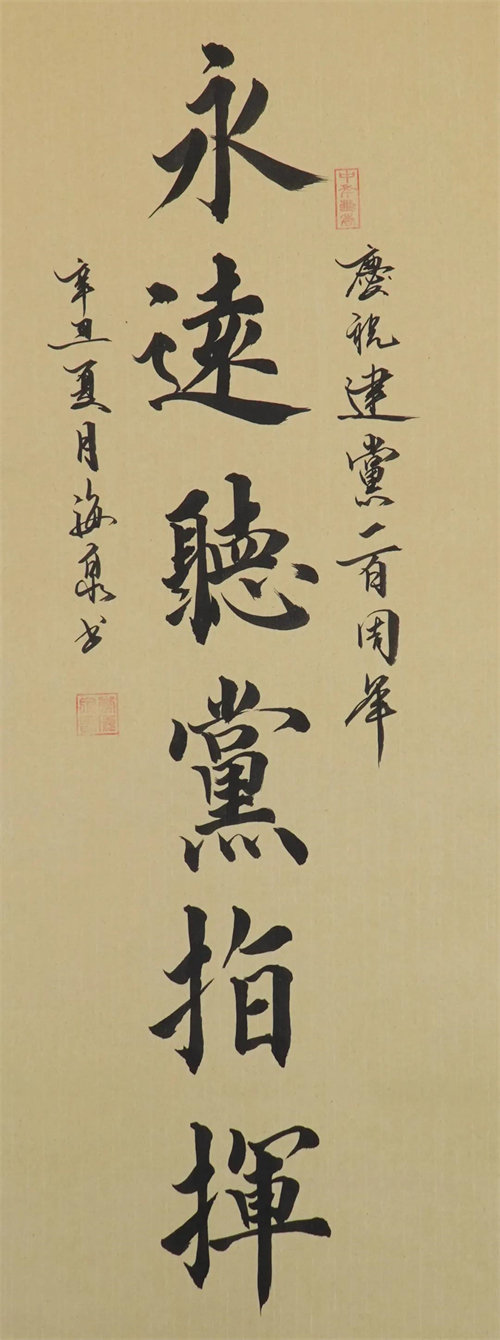 慶祝建黨一百周年
永遠聽黨指揮
辛丑夏月海泉书